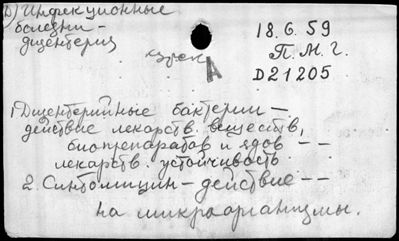 D) Инфекционные
болезни -
дизентерия
18.6.59
П.М.Г.
A
D21205
1. Дизентерийные бактерии —
действие лекарств. веществ,
биопрепаратов и ядов - -
лекарств. устойчивость.
2. Синтомицин — действие - -
на микроорганизмы.